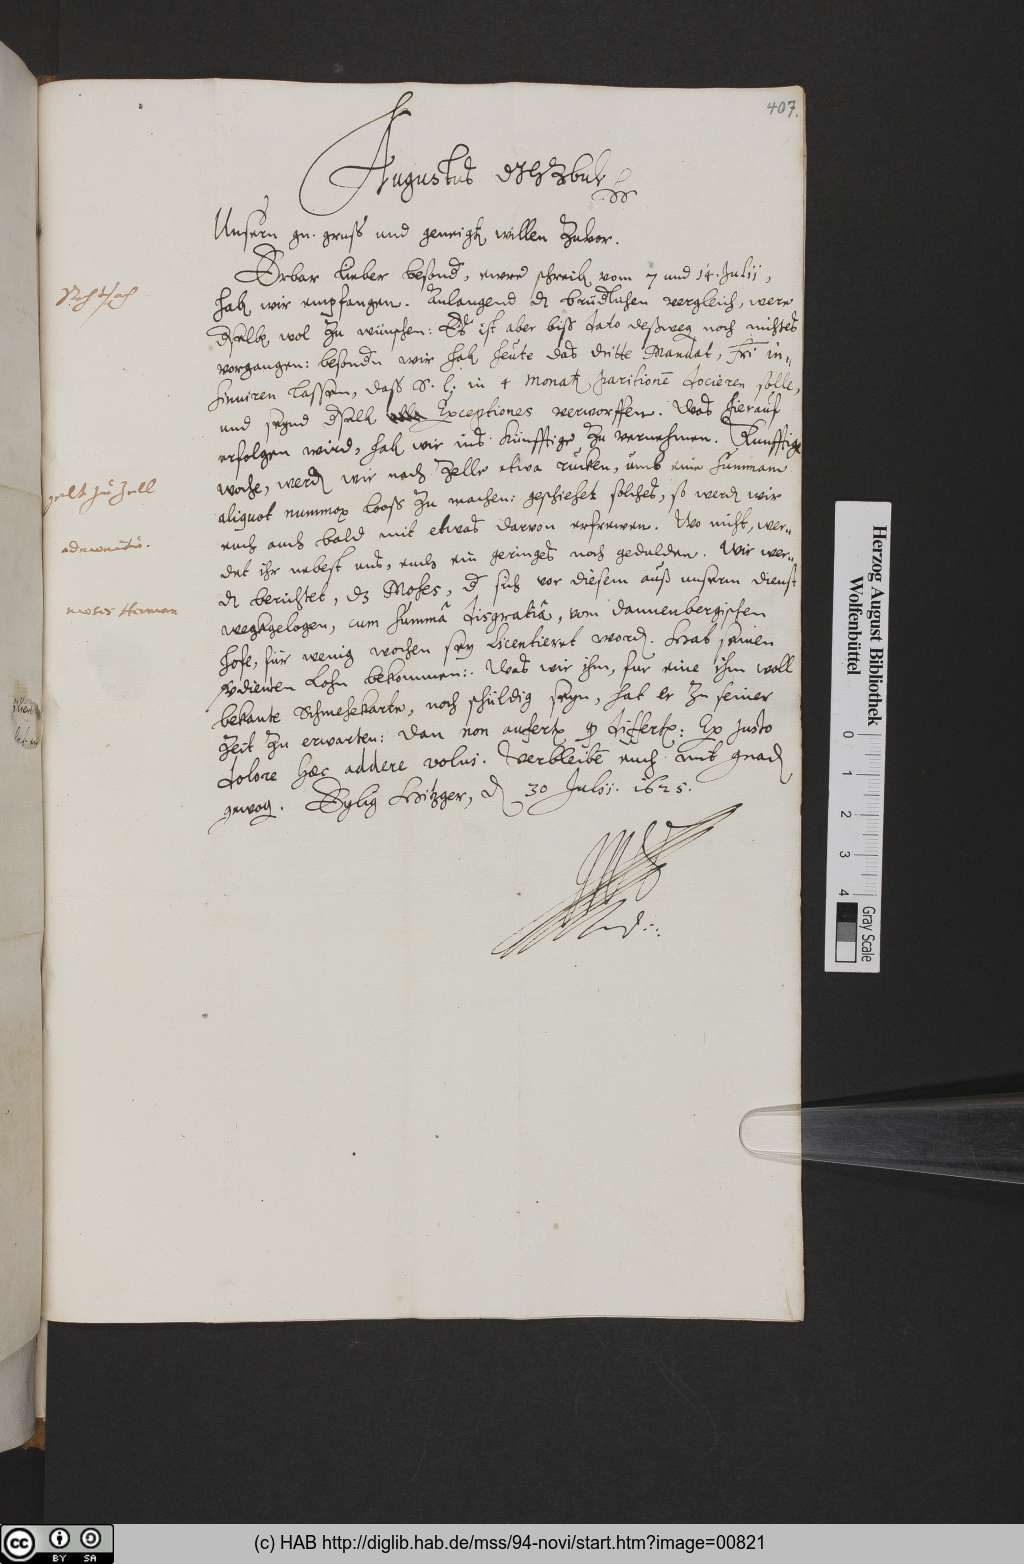 407.
Augustus
Unsern gn. gruß und geneigtn willen zuvor.
Erbar lieber besond, ewre schreibn vom 7 und 14. Julij,
habn wir empfangen. Anlangend dn brüdlichen vergleich, were
dselbe wol zu wünschen: Es ist aber biß dato deßweg noch nichtes
vorgangen: besondn wir habn heute das dritte Mandat, Fri in-
sinuiren lassen, daß S. L. in 4 Monatn paritionē docieren solle,
und seynd dselbn Exceptiones verworffen. Was hierauf
erfolgen wird, habn wir ins künfftige zu vernehmen. Kunfftige
woche, werdn wir nach Zelle etwa rucken, umb eine summam
aliquot nummor looß zu machen: geschiehet solches, so werdn wir
euch auch bald mit etwas darvon erfrewen. Wo nicht, wer-
det ihr nebest uns, euch ein geringes noch gedulden. Wir wer-
dn berichtet, dz Moses, d sich vor diesem auß unserm dienst
weggelogen, cum summâ disgratiâ, vom dannenbergischen
hofe, für wenig wochen sey licentieret wordn. Hat seinen
vdienten Lohn bekommen: Was wir ihm, für eine ihm woll
bekante Schmehekarte, noch schüldig seyn, hat er zu seiner
Zeit zu erwarten: dan non aufert q differt: Ex justo
dolore hæc addere volui. Verbleibē euch mit gnadn
gewog. Eylig Hitzger, dn 30 Julij. 1625.
gelt zu Zell
moses
Herzog August Bibliothek
Wolfenbüttel
0 1 2 3 4
Gray Scale
cc BY SA
(c) HAB http://diglib.hab.de/mss/94-novi/start.htm?image=00821